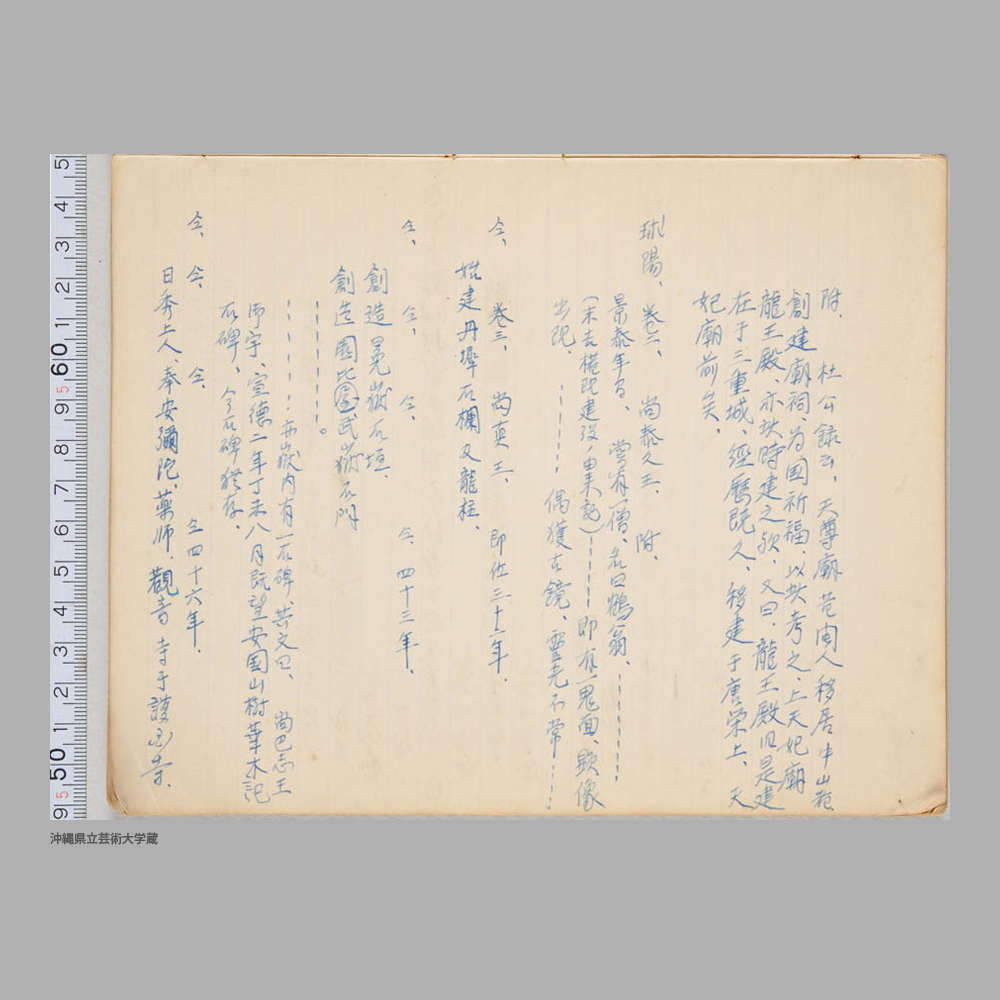 附、 杜公録云、天尊廟昔閩人移居中山 創建廟祠、為国祈福、以此考之、上天妃廟
龍王殿、亦此時建之欤、又曰、龍王殿旧是建
在于三重城、経歴既久、移建于唐栄上、天
妃廟前矣、
球陽、巻二、尚泰久王、附、
景泰年間、嘗有一僧、名曰鶴翁、
(末吉権現建設ノ由来記)即有一鬼面、顕像
出現、 偶獲古鏡、霊光不常
仝、 巻三、尚真王、即位三十二年、
始建丹墀石欄及龍柱、
仝、 仝、 仝、 仝、四十三年、
創造冕嶽石垣、
創造園比屋武嶽石門
。
亦嶽内有一石碑、其文曰、尚巴志王
御宇、宣徳二年丁未八月既望安国山樹華木記
石碑、今石碑猶存、
仝、 仝、 仝、 仝四十六年、
日秀上人、奉安彌陀、薬师、觀音寺于護国寺、
沖縄県立芸術大学蔵